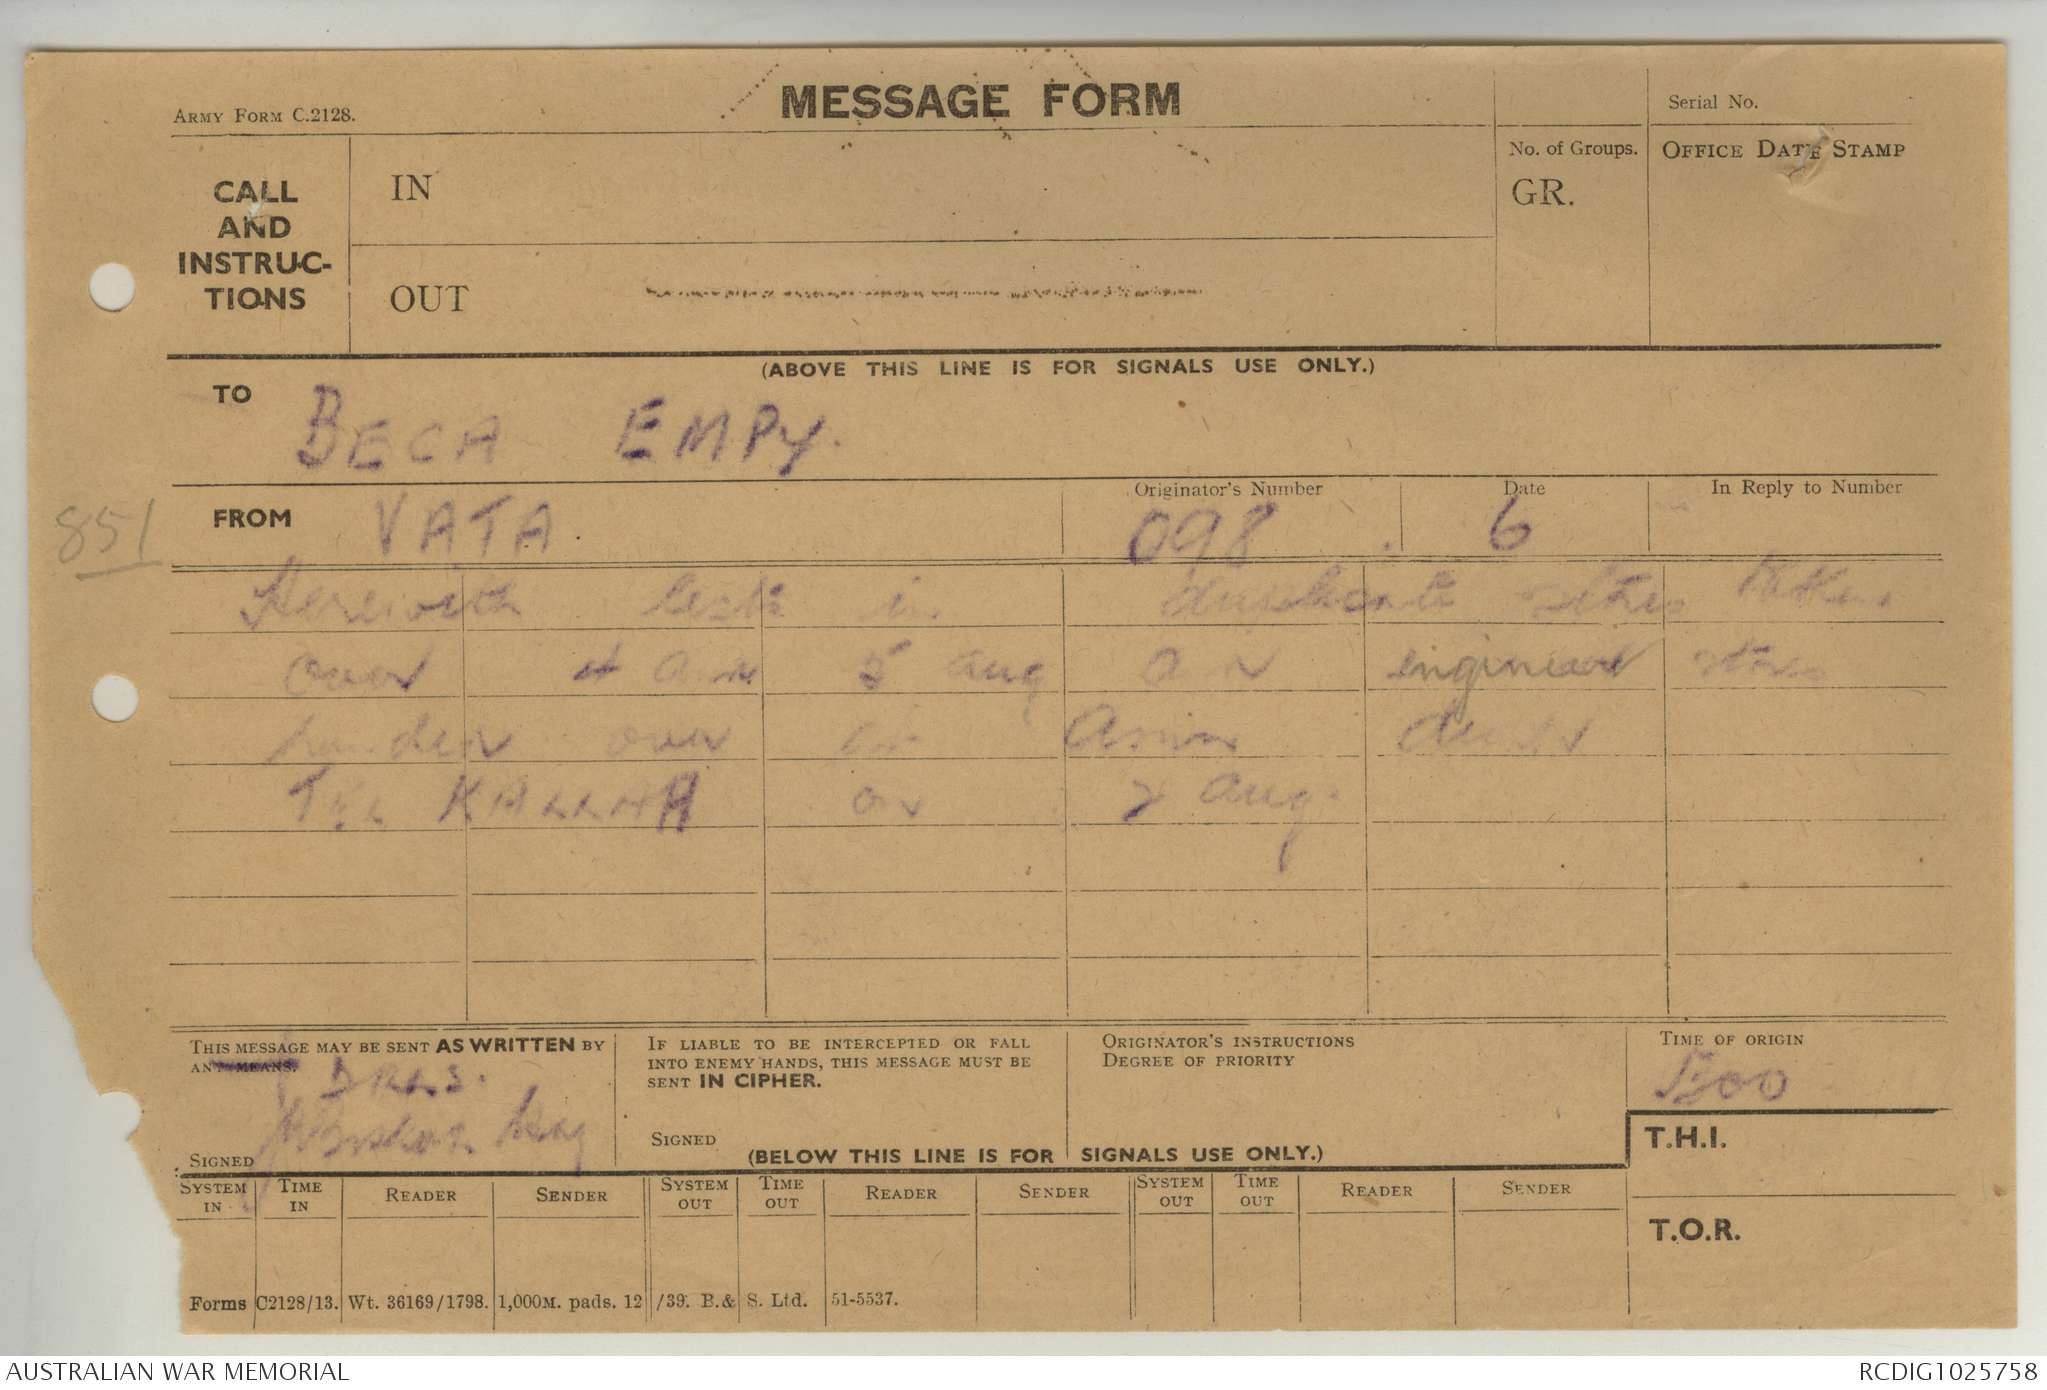 MESSAGE FORM
ARMY FORM C.2128.
Serial No.
CALL AND INSTRUC-TIONS
IN
No. of Groups.
GR.
OFFICE DATE STAMP
OUT
(ABOVE THIS LINE IS FOR SIGNALS USE ONLY.)
TO BECA EMPY.
851
FROM VATA.
Originator's Number 098
Date 6
In Reply to Number
Herewith lists in duplicate stores taken
over 4 Aug 5 aug engineer stores
handed over dump
TEL KALLAH on 2 aug.
THIS MESSAGE MAY BE SENT AS WRITTEN BY
ANY MEANS.
DRLS.
SIGNED
IF LIABLE TO BE INTERCEPTED OR FALL
INTO ENEMY HANDS, THIS MESSAGE MUST BE
SENT IN CIPHER.
SIGNED
ORIGINATOR'S INSTRUCTIONS
DEGREE OF PRIORITY
TIME OF ORIGIN
T.H.I.
(BELOW THIS LINE IS FOR SIGNALS USE ONLY.)
SYSTEM IN TIME IN READER SENDER SYSTEM OUT TIME OUT READER SENDER SYSTEM OUT TIME OUT READER SENDER
T.O.R.
Forms C2128/13. Wt. 36169/1798. 1,000M. pads. 12/39. B.& S. Ltd. 51-5537.
AUSTRALIAN WAR MEMORIAL
RCDIG1025758